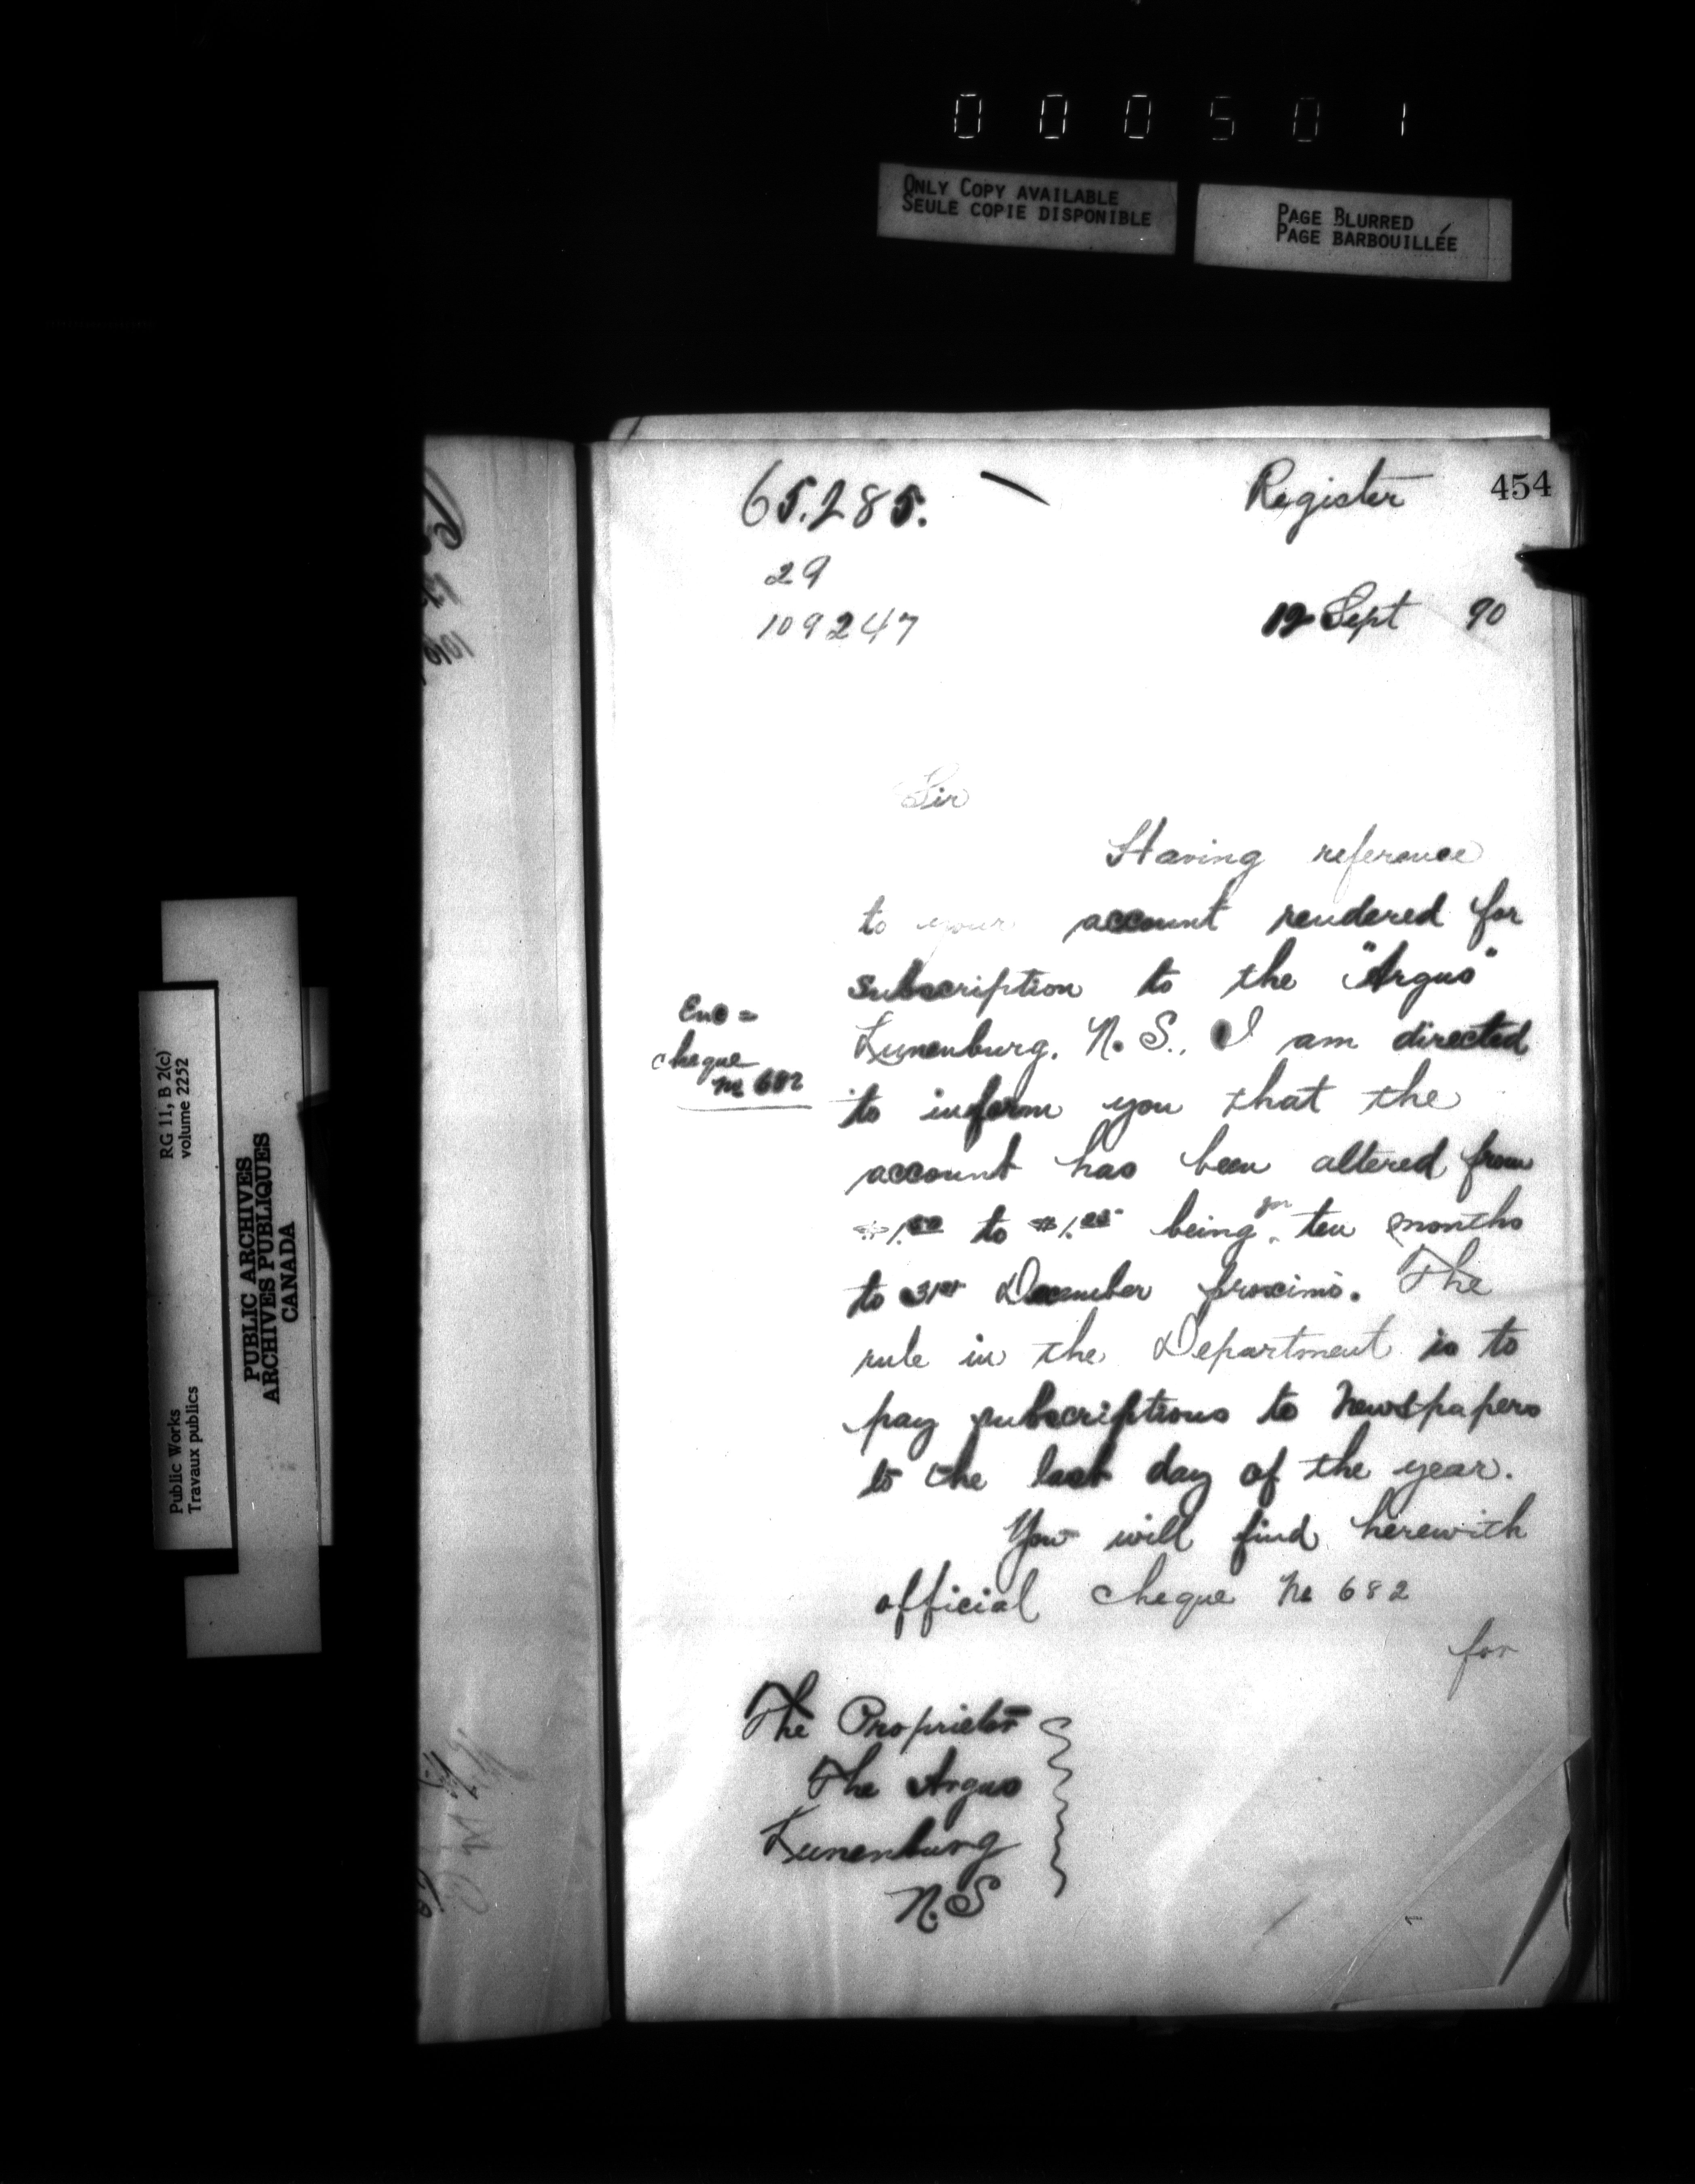 000501
ONLY COPY AVAILABLE
SEULE COPIE DISPONIBLE
PAGE BLURRED
PAGE BARBOUILLÉE
65.285. Register 454
29
109247 12 Sept 90
Sir
Having reference
to your account rendered for
subscription to the "Argus"
Lunenburg, N. S., I am directed
to inform you that the
account has been altered from
$1.50 to $1.25 being for ten months
to 31st December proximo. The
rule in the Department is to
pay subscriptions to Newspapers
to the last day of the year.
You will find herewith
official cheque No 682
for
Enc =
cheque
No 682
The Proprietor
The Argus
Lunenburg
N.S
RG 11, B 2(c)
volume 2252
Public Works
Travaux publics
PUBLIC ARCHIVES
ARCHIVES PUBLIQUES
CANADA